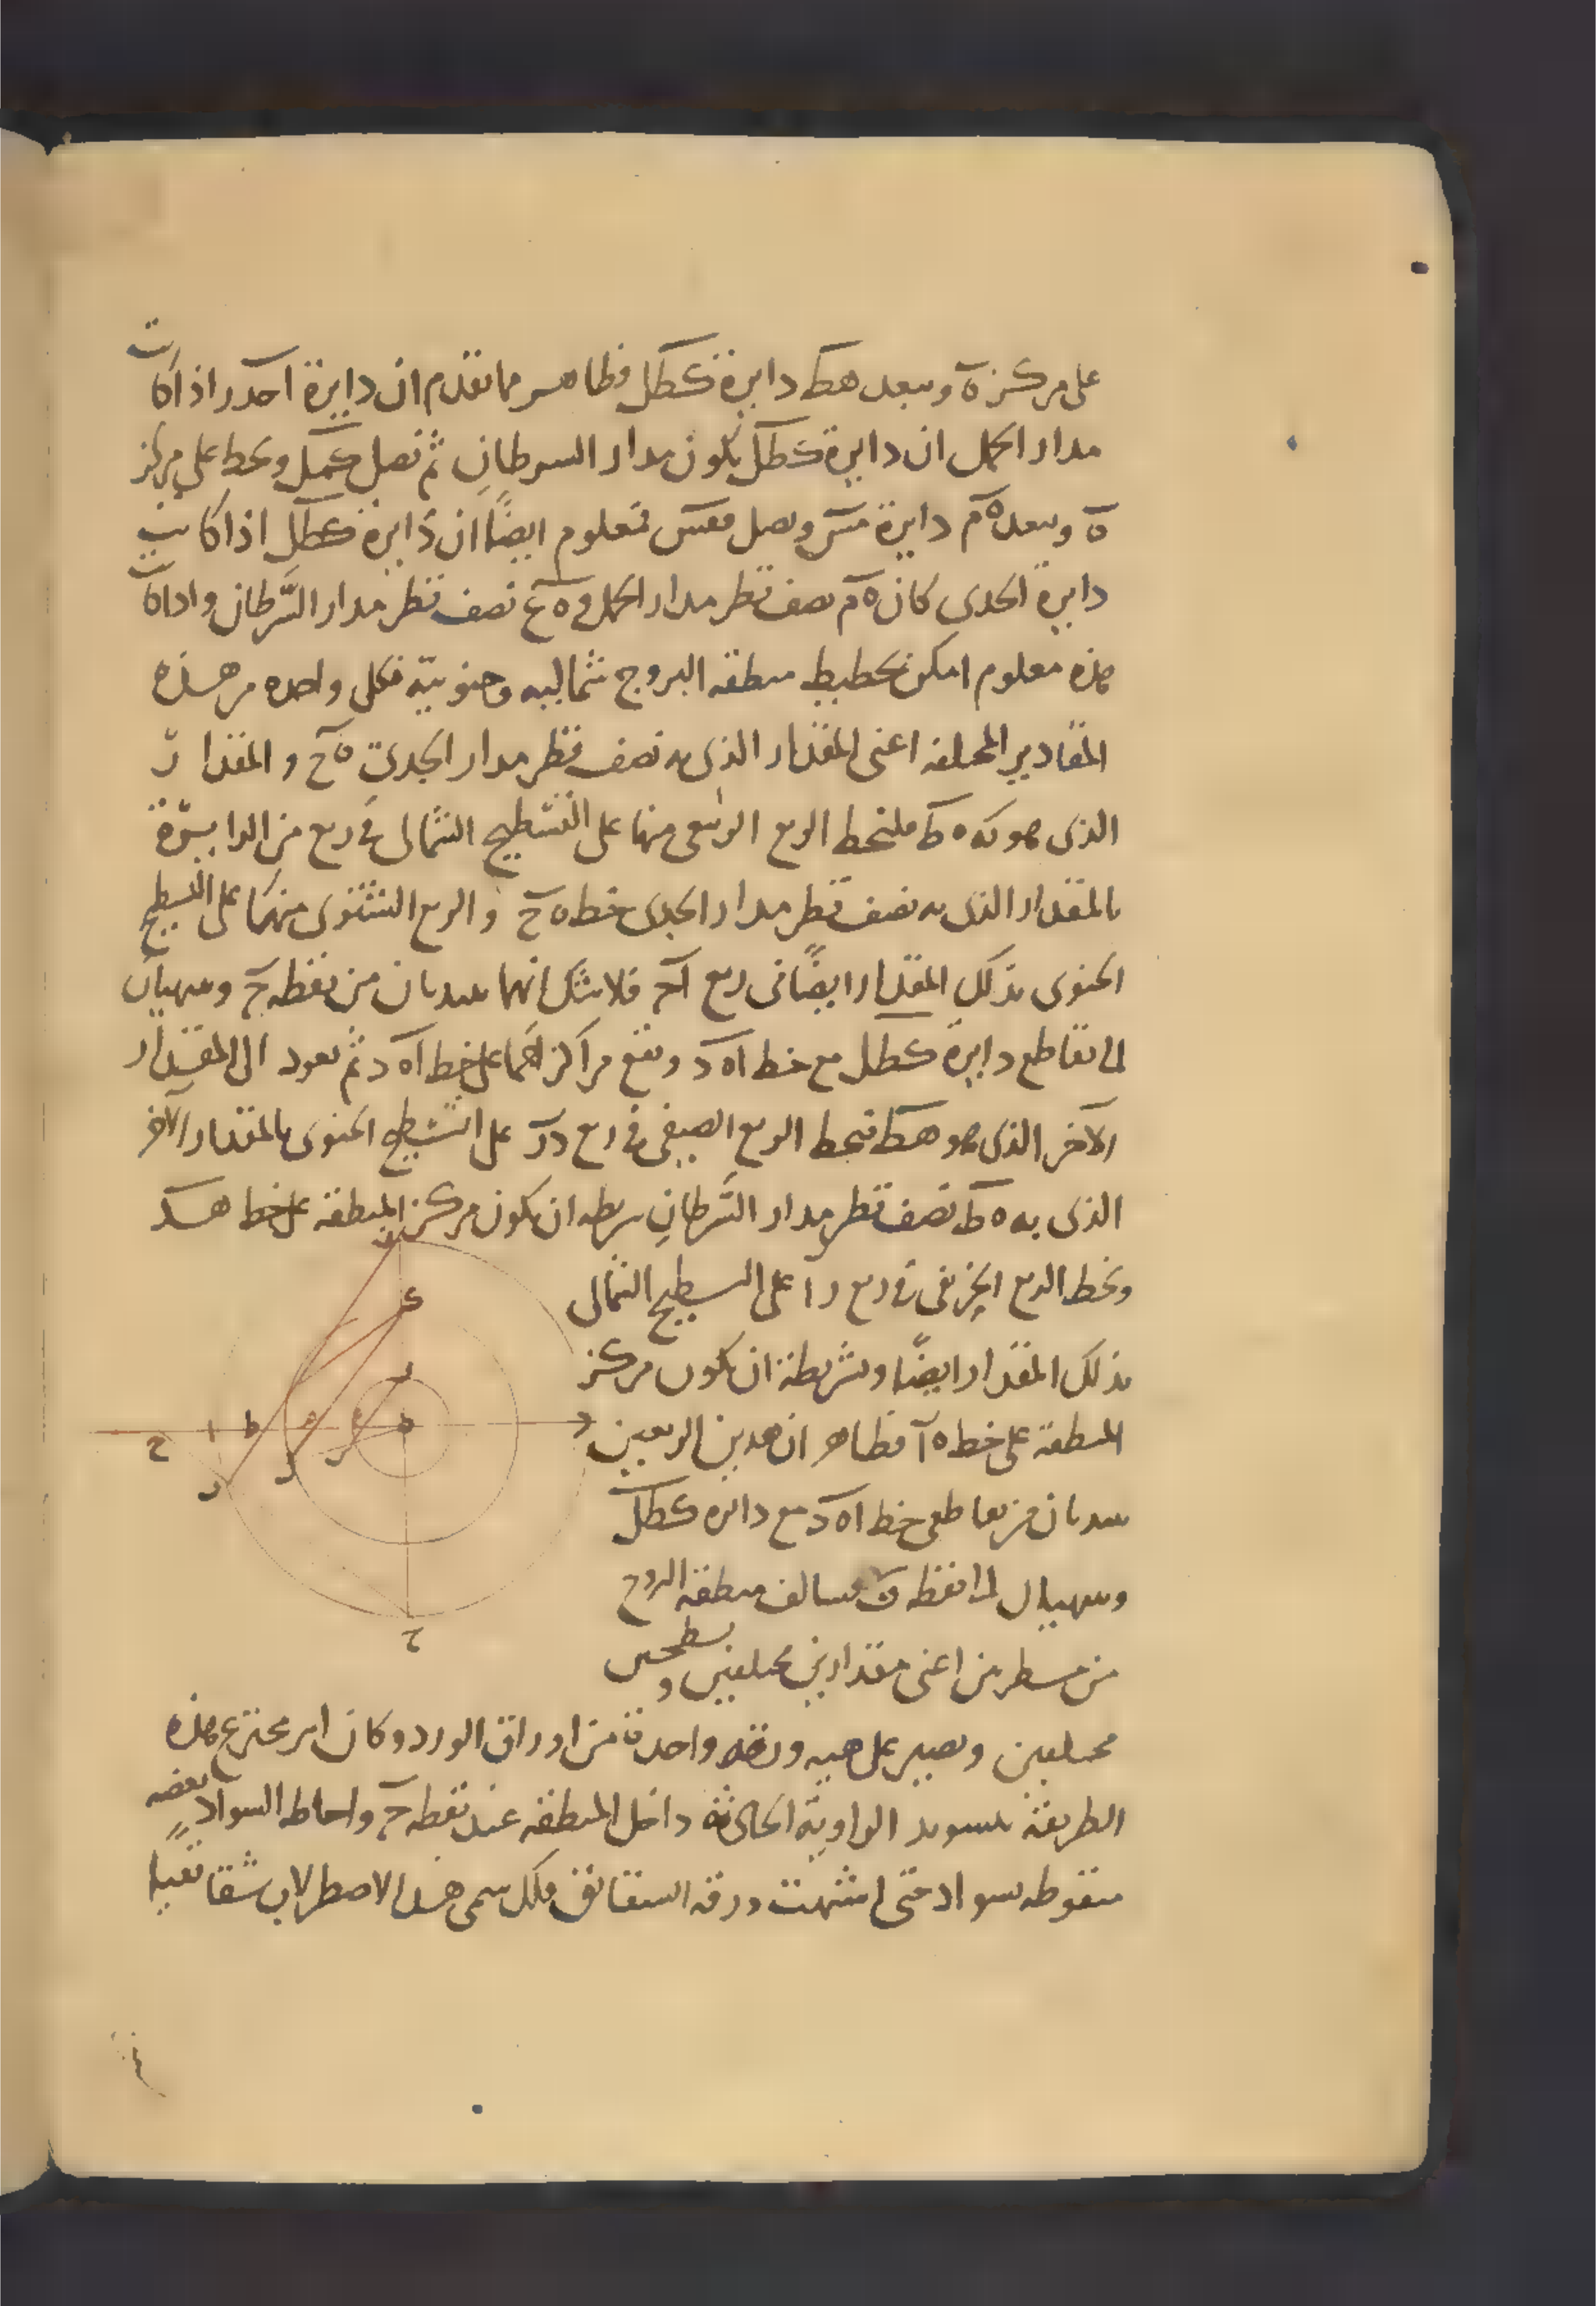 على مركز ه وببعد هط دايرة كطل فظاهر مما تقدم ان دايرة احدر اذا كانت
مدار الحمل ان دايرة كطل تكون مدار السرطان ثم نصل كمل ونخط على مركز
ه وببعد ه م دايرة مس ونصل فمعلوم ايضًا ان دايرة كطل اذا كانت
دايرة الجدى كان ه م نصف قطر مدار الحمل و ه ع نصف قطر مدار السرطان واذا كان
هذه معلوم امكن تخطيط منطقه البروج شماليه وجنوبيّه فكل واحده من هذه
المقادير المختلفه اعنى المقدار الذى به نصف قطر مدار الجدى ه ح والمقدار
الذى هو به ه ط فلنخط الربع الربيعى منها على التسطيح الشمالى فى ربع من الدايرة
بالمقدار الذى به نصف قطر مدار الجدى خط ه ح والربع الشتوى منهما على التسطيح
الجنوبى بذلك المقدار ايضًا فى ربع اح فلا شك انهما يبتديان من نقطه ح وينتهيان
الى تقاطع دايرة كطل مع خط اه د وتقع مراكزهما على خط اه د ثم نعود الى المقدار
الآخر الذى هو هط فنخط الربع الصيفى فى ربع در على التسطيح الجنوبى بالمقدار الآخر
الذى به ه ط نصف قطر مدار السرطان بشريطه ان يكون مركز المنطقه على خط هد
ونخط الربع الخريفى فى ربع را على التسطيح الشمالى
بذلك المقدار ايضًا وشريطة ان يكون مركز
المنطقه على خط ه ا فظاهر ان هذين الربعين
يبتديان من تقاطعى خط اه د مع دائره كطل
وينتهيان الى نقطه فتتالف منطقه البروج
من مسطرين اعنى مقدارين مختلفين وتسطيحين
مختلفين وتصير على هيه ورقه واحدة من اوراق الورد وكان امر مخترع هذه
الطريقة بتسويد الزاويه الحادثة داخل المنطقه عند نقطه ح واحاطه السواد بعضه
منقوطه بسواد حتى اشبهت ورقه الشقائق فلذلك سمى هذا الاصطرلاب شقائقيا
ع
ر
ه
م
ط
ا
ح
د
ح